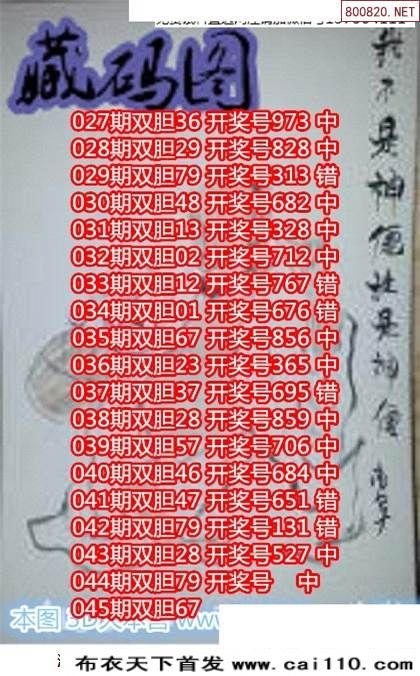 800820.NET
藏码图
我不是神仙胜是神仙
027期双胆36 开奖号973 中
028期双胆29 开奖号828 中
029期双胆79 开奖号313 错
030期双胆48 开奖号682 中
031期双胆13 开奖号328 中
032期双胆02 开奖号712 中
033期双胆12 开奖号767 错
034期双胆01 开奖号676 错
035期双胆67 开奖号856 中
036期双胆23 开奖号365 中
037期双胆37 开奖号695 错
038期双胆28 开奖号859 中
039期双胆57 开奖号706 中
040期双胆46 开奖号684 中
041期双胆47 开奖号651 错
042期双胆79 开奖号131 错
043期双胆28 开奖号527 中
044期双胆79 开奖号 中
045期双胆67
本图 3D大本营 ww
布衣天下首发 www.cai110.com